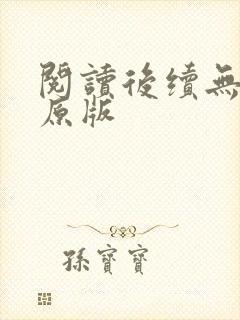 閱讀後續無
原版
孫寶寶